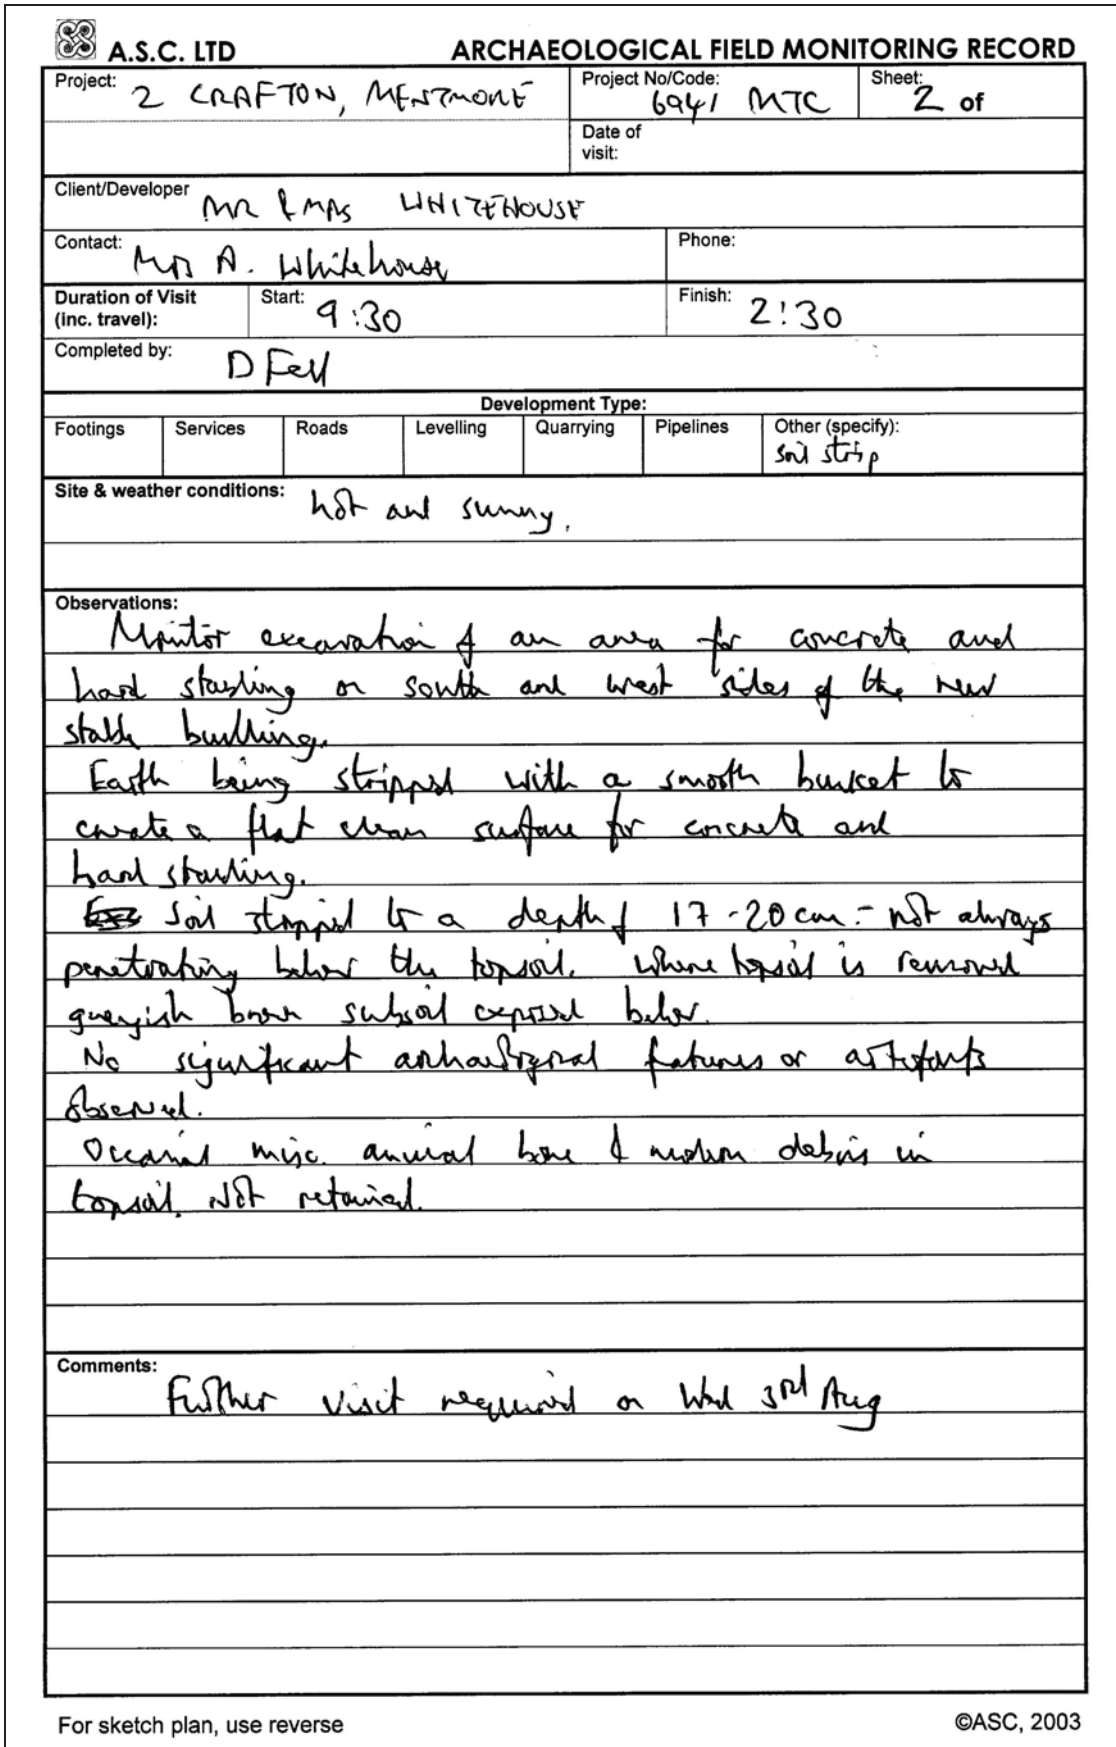 A.S.C. LTD ARCHAEOLOGICAL FIELD MONITORING RECORD
Project: 2 CRAFTON, MENTMORE
Project No/Code: 6941 MTC
Sheet: 2 of
Date of visit:
Client/Developer MR & MRS WHITEHOUSE
Contact: Mrs A. Whitehouse
Phone:
Duration of Visit (inc. travel):
Start: 9:30
Finish: 2:30
Completed by: D Fell
Development Type:
Footings Services Roads Levelling Quarrying Pipelines Other (specify): soil strip
Site & weather conditions: hot and sunny.
Observations:
Monitor excavation of an area for concrete and
hard standing on south and west sides of the new
stable building.
Earth being stripped with a smooth bucket to
create a flat clean surface for concrete and
hard standing.
Soil stripped to a depth of 17-20 cm - not always
penetrating below the topsoil. Where topsoil is removed
greyish brown subsoil exposed below.
No significant archaeological features or artefacts
observed.
Occasional misc. animal bone & modern debris in
topsoil. Not retained.
Comments:
Further visit required on Wed 3rd Aug
For sketch plan, use reverse
©ASC, 2003